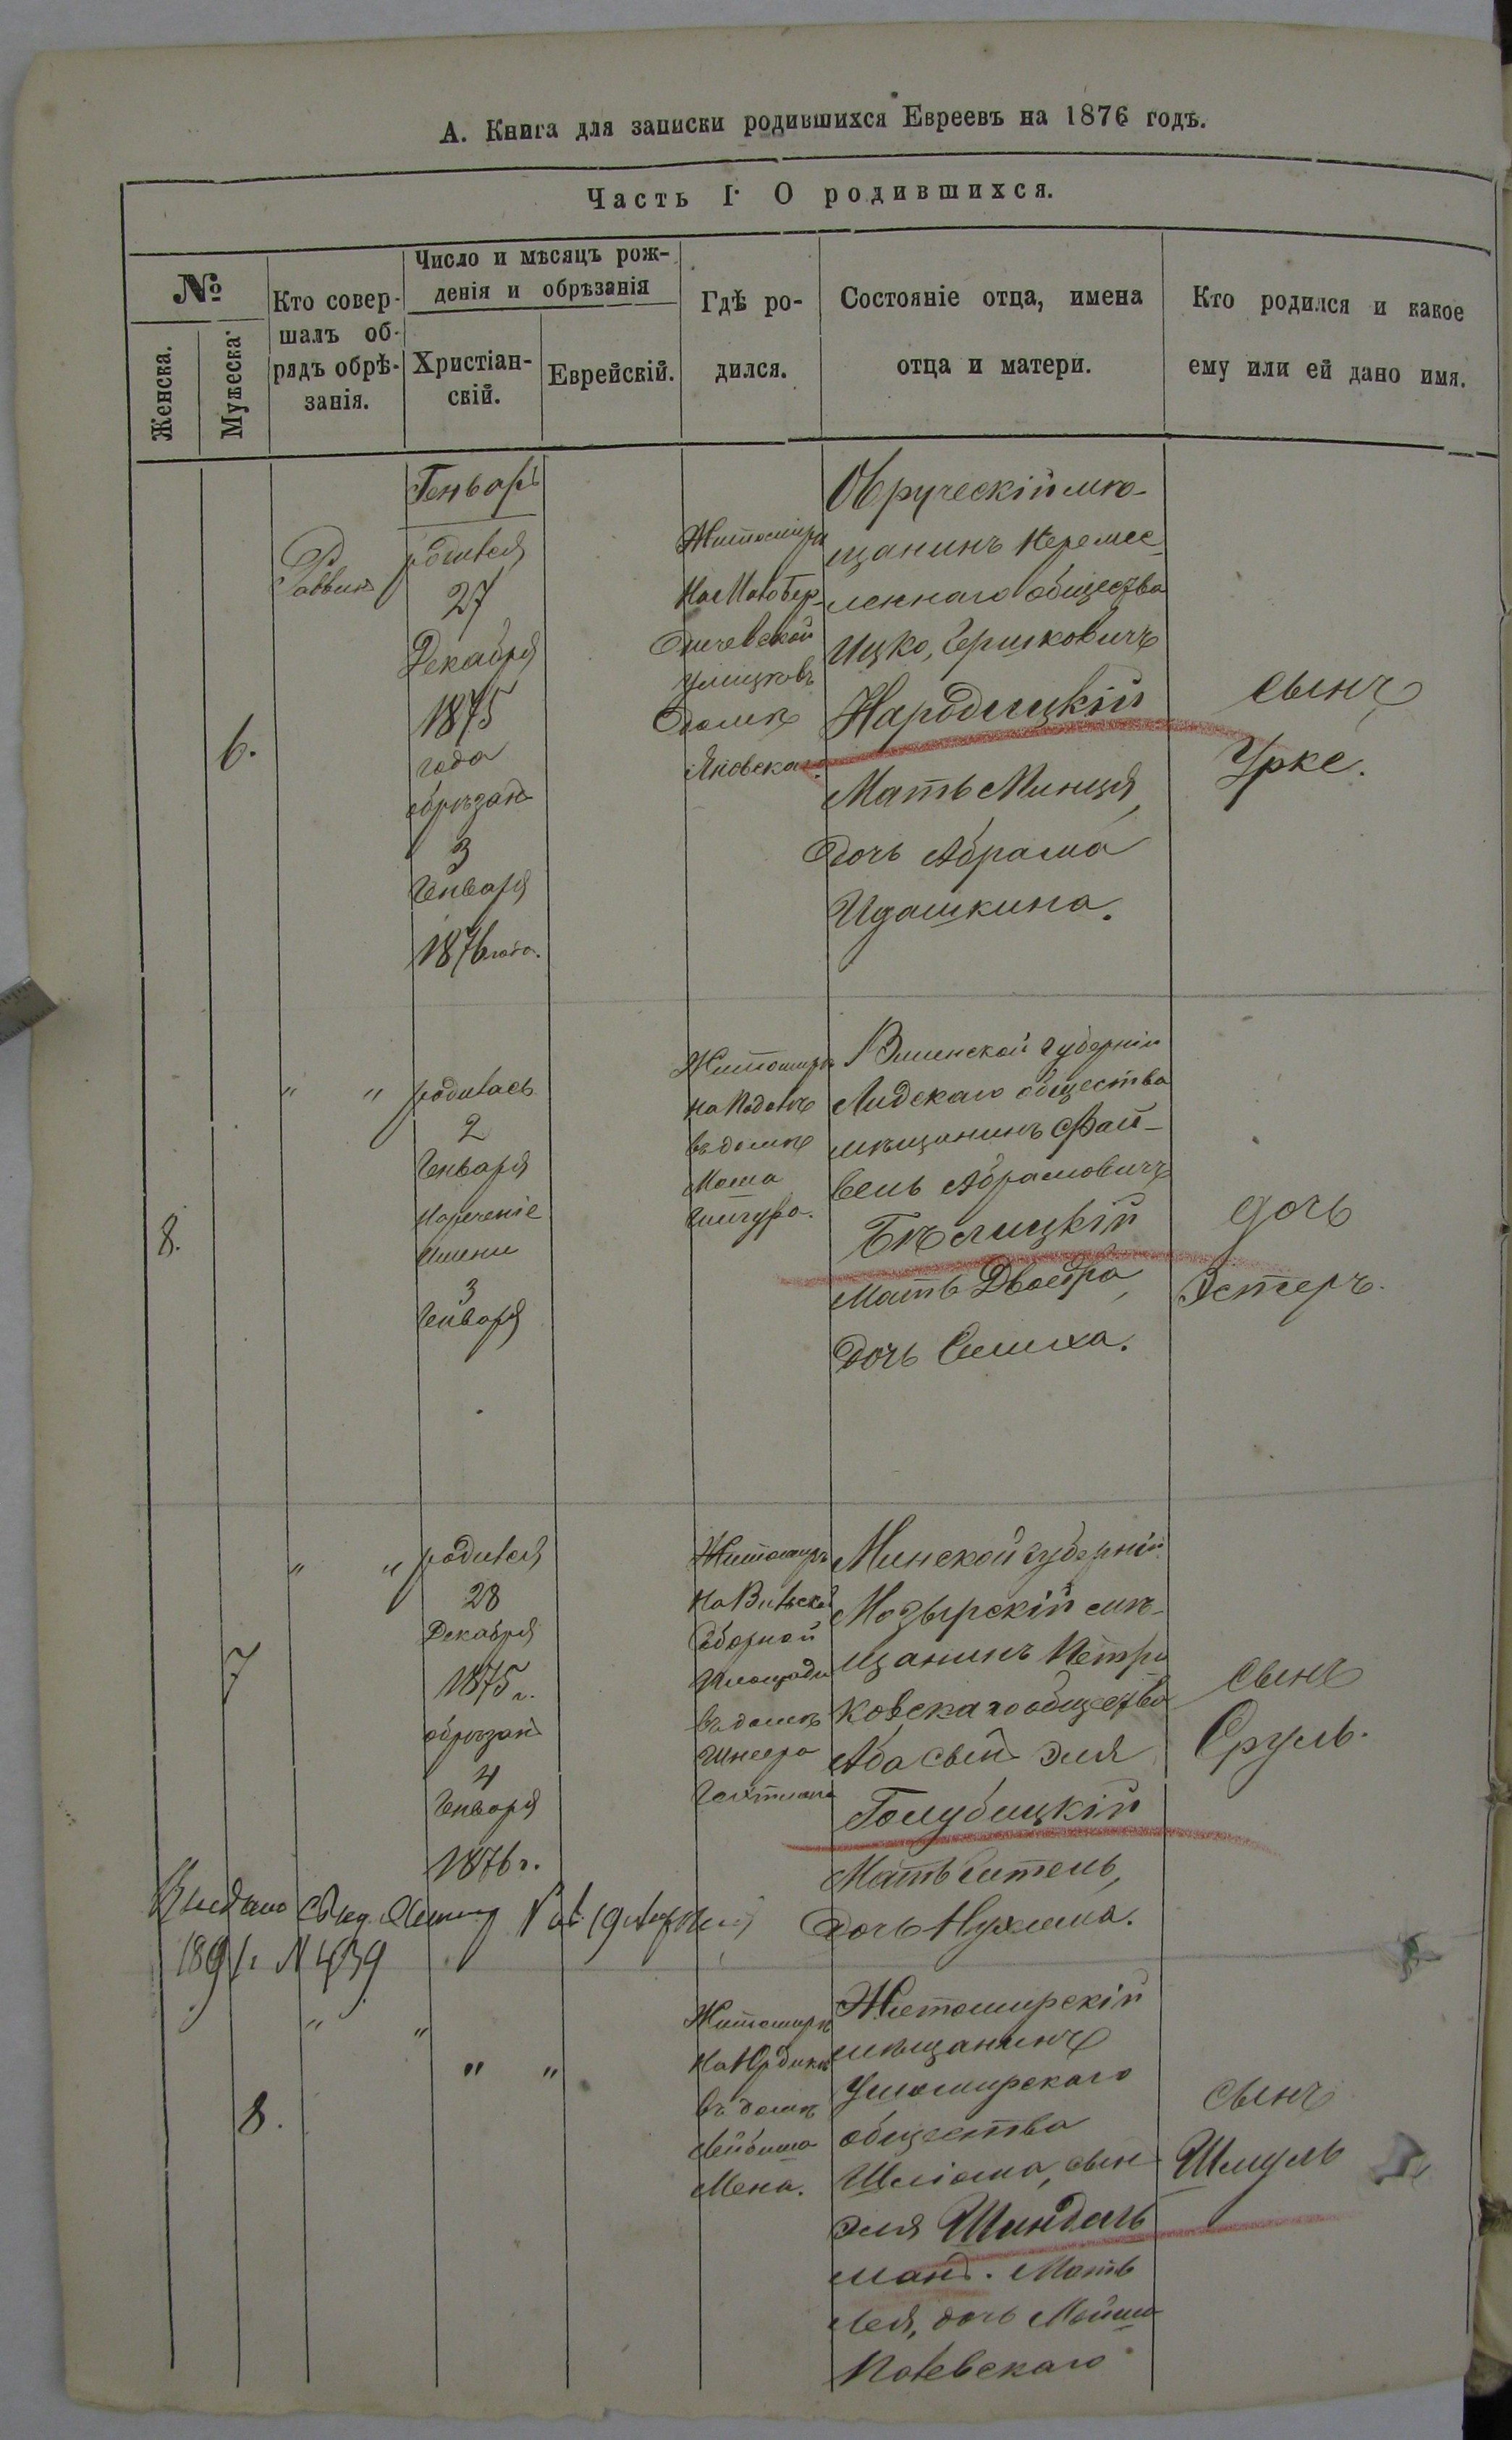 А. Книга для записки родившихся Евреевъ на 1876 годъ.
Часть I. О родившихся.
№
Женска.
Мужеска.
Кто совер-
шалъ об-
рядъ обрѣ-
занія.
Число и мѣсяцъ рож-
денія и обрѣзанія
Христіан-
скій.
Еврейскій.
Гдѣ ро-
дился.
Состояніе отца, имена
отца и матери.
Кто родился и какое
ему или ей дано имя.
6.
Раввинъ
Генварь
родился
27
Декабря
1875
года
обрѣзанъ
3
Генваря
1876 года.
Житомиръ
На Мало Бер-
дичевской
улицѣ въ
домѣ
Яновскаго.
Овручскій мѣ-
щанинъ
леннаго общества
Ицко, Гершковичъ
Народицкій
Мать Минця,
дочь Абрама
Идашкина.
сынъ
Урке.
8.
" "
родилась
2
Генваря
Нареченіе
имени
3
Генваря
Житомиръ
На Подолѣ
въ домѣ
Виленской губерніи
Лидскаго общества
мѣщанинъ Фай-
вель Абрамовичъ
Бѣлицкій
Мать Двойра,
дочь Симха.
дочь
Эстеръ.
7
" "
родился
28
Декабря
1875 г.
обрѣзанъ
4
Генваря
1876 г.
Житомиръ
На Вильской
Соборной
площади
въ домѣ
Шнеера
Минской губерніи
Мозырскій мѣ-
щанинъ Петри
ковскаго общества
Аба сынъ Эля
Голубицкій
Мать Гитель,
дочь Нухима.
сынъ
Сруль.
Выдано
1891 г. № 439
8.
" "
" "
Житомиръ
въ домѣ
Лейбиша
Мена.
Житомирскій
мѣщанинъ
Ушомирскаго
общества
Шліома, сынъ
Эля Шиндель
манъ. Мать
Лея, дочь
сынъ
Шмуль